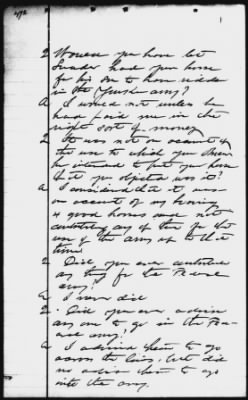 Q Would you have let
Sunder had your horse
for his son to have ridden
in the Rebel army?
A. I would not unless he
had paid me in the
right sort of money
Q It was not on account of
the use to which
he intended to put your horse
that you objected was it?
A I considered that it was
on account of my having
a good horse and not
contributing any of them for the
use of the army up to that
time
Q. Did you ever contribute
any thing for the Rebel
army?
A I never did
Q. Did you ever advise
any one to go in the
army?
A I advised them to go
across the lines, but did
no advise them to go
into the army.